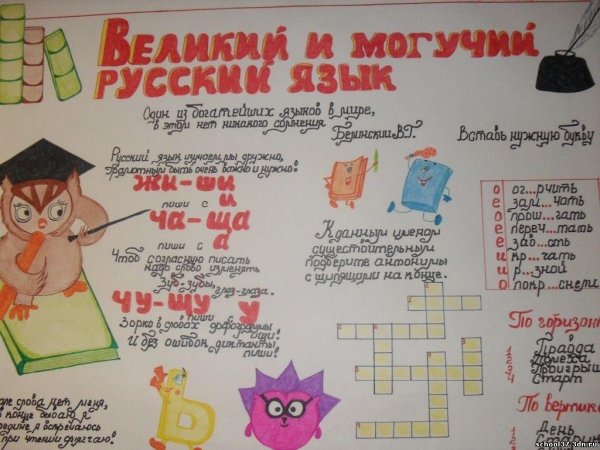 Великий и могучий
русский язык
Один из богатейших языков в мире,
в этом нет никакого сомнения
Белинский В.Г.
Русский язык изучаем мы дружно,
Грамотным быть очень важно и нужно!
жи-ши
пиши с и
ча-ща
пиши с а
Чтоб согласную писать
надо слово изменять
Зуб-зубы, глаз-глаза.
чу-щу у
пиши
Зорко в словах орфограммы
ищи!
И без ошибок диктанты
пиши!
слова нет меня,
конце бываю я
я встречаюсь
при чтении
К данным именам
существительным
подберите антонимы
с шипящими на конце.
Вставь нужную букву
ог...рчить
зам...чать
прош...гать
переч...тать
зав...сть
кр...чать
р...зной
покр...снели
По горизон
1 Правда
2 Помеха
3 Проигрыш
4 Старт
По вертик
1 День
2 Старик
school37.3dn.ru